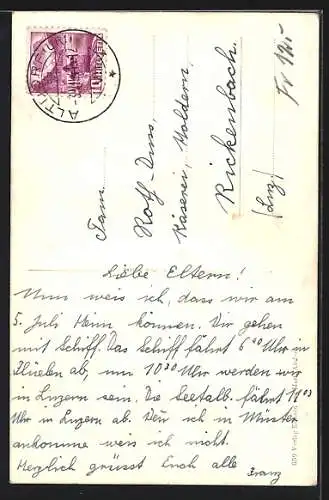 ALTDORF (URI)
HELVETIA
Fr 12.-
Fam.
Roth-Duss,
Käserei, Moldern,
Rickenbach.
(Luz.)
Liebe Eltern!
Nun weis ich, dass wir am
5. Juli Heim können. Wir gehen
mit Schiff. Das Schiff fährt 6 40 Uhr in
Flüelen ab, um 10 30 Uhr werden wir
in Luzern sein. Die Seethalb. fährt 11 03
Uhr in Luzern ab. Wen ich in Münster
ankomme weis ich nicht.
Herzlich grüsst Euch alle
Franz